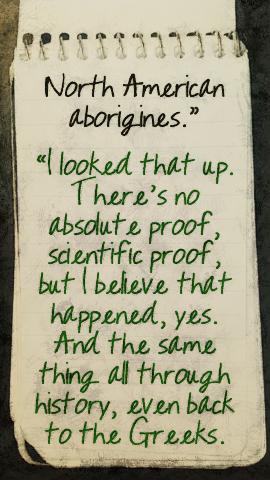 North American
aborigines.”
“I looked that up.
There’s no
absolute proof,
scientific proof,
but I believe that
happened, yes.
And the same
thing all through
history, even back
to the Greeks.